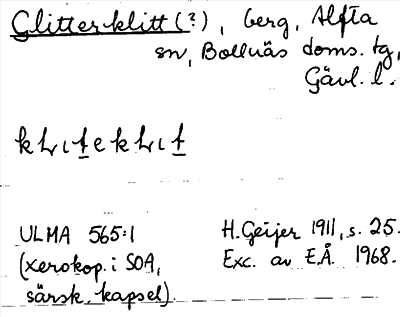 Glitterklitt (?), berg, Alfta
sn, Bollnäs doms. tg,
Gävl. l.
ULMA 565:1
(xerokop. i SOA,
särsk. kapsel).
H. Geijer 1911, s. 25.
Exc. av E.Å. 1968.